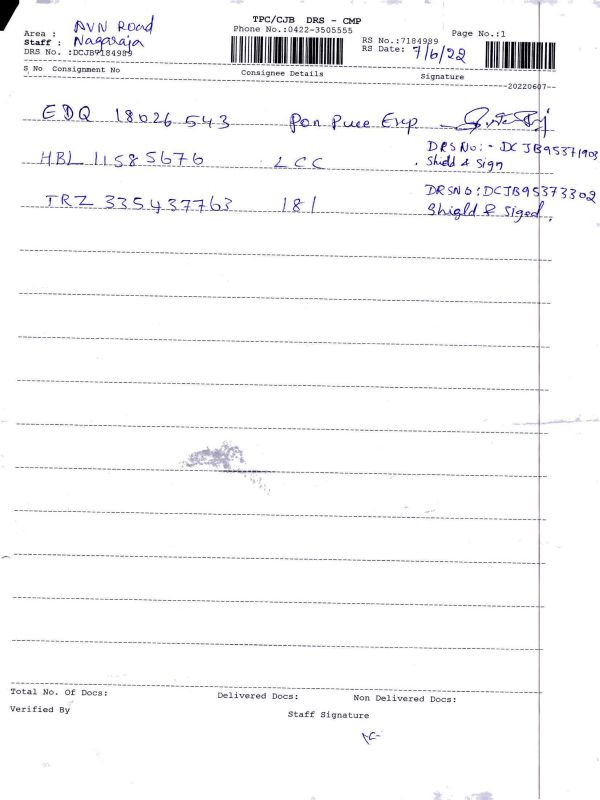 TPC/CJB DRS - CMP
Phone No.:0422-3505555
Page No.:1
Area : AVN Road
Staff : Nagaraja
DRS No. :DCJB7184989
RS No.:7184989
RS Date: 7/6/22
S No Consignment No Consignee Details Signature
20220607
EDQ 18026543
DRS No:- DCJB95371903
HBL 11585676 LCC Shield & Sign
DRSNO:DCJB95373302
TRZ 335437763 181 Shigld & Siged,
Total No. Of Docs: Delivered Docs: Non Delivered Docs:
Verified By
Staff Signature